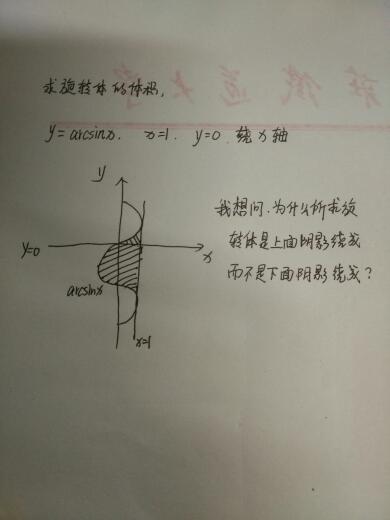 求旋转体的体积,
y=arcsinx. x=1. y=0. 绕x轴
y
我想问.为什么所求旋
转体是上面阴影绕成
而不是下面阴影绕成?
y=0
x
arcsinx
x=1